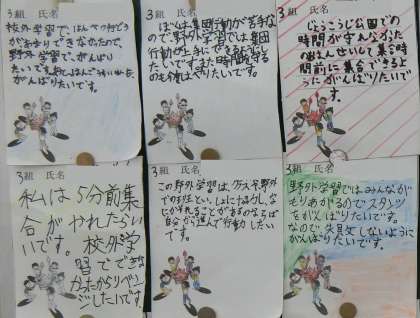 3組 氏名
校外学習で、はんべつ行どう
がお守りできなかったので、
野外学習で、がんばり
たいです。
がんばりたいです。
3組 氏名
ぼくは集団行動が苦手な
ので、野外学習では集団
行動が上手にできるように
したいです。また時間を守る
のも確にやりたいです。
3組 氏名
じょうこうじ公園での
時間が守れなかった
集合時
間前に集合できるよ
うにがんばりたいで
す。
3組 氏名
私は5分前集
合がやれたらい
いです。校外学
習でできな
かったからリベン
ジしたいです。
3組 氏名
この野外学習は、クラスや野外
での班といっしょに協力し、な
にかやれることがあるのならば
自分から進んで行動したい
です。
3組 氏名
野外学習ではみんなが
もりあがるのでスタンツ
をがんばりたいです。
なので、失敗しないように
がんばりたいです。